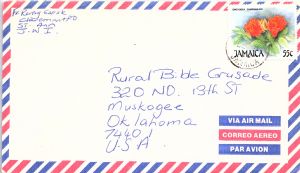 ST. ANN
J.W.I.
JAMAICA 55c
Rural Bible Crusade
320 ND. 13th ST
Muskogee
Oklahoma
74401
U.S.A
VIA AIR MAIL
CORREO AEREO
PAR AVION